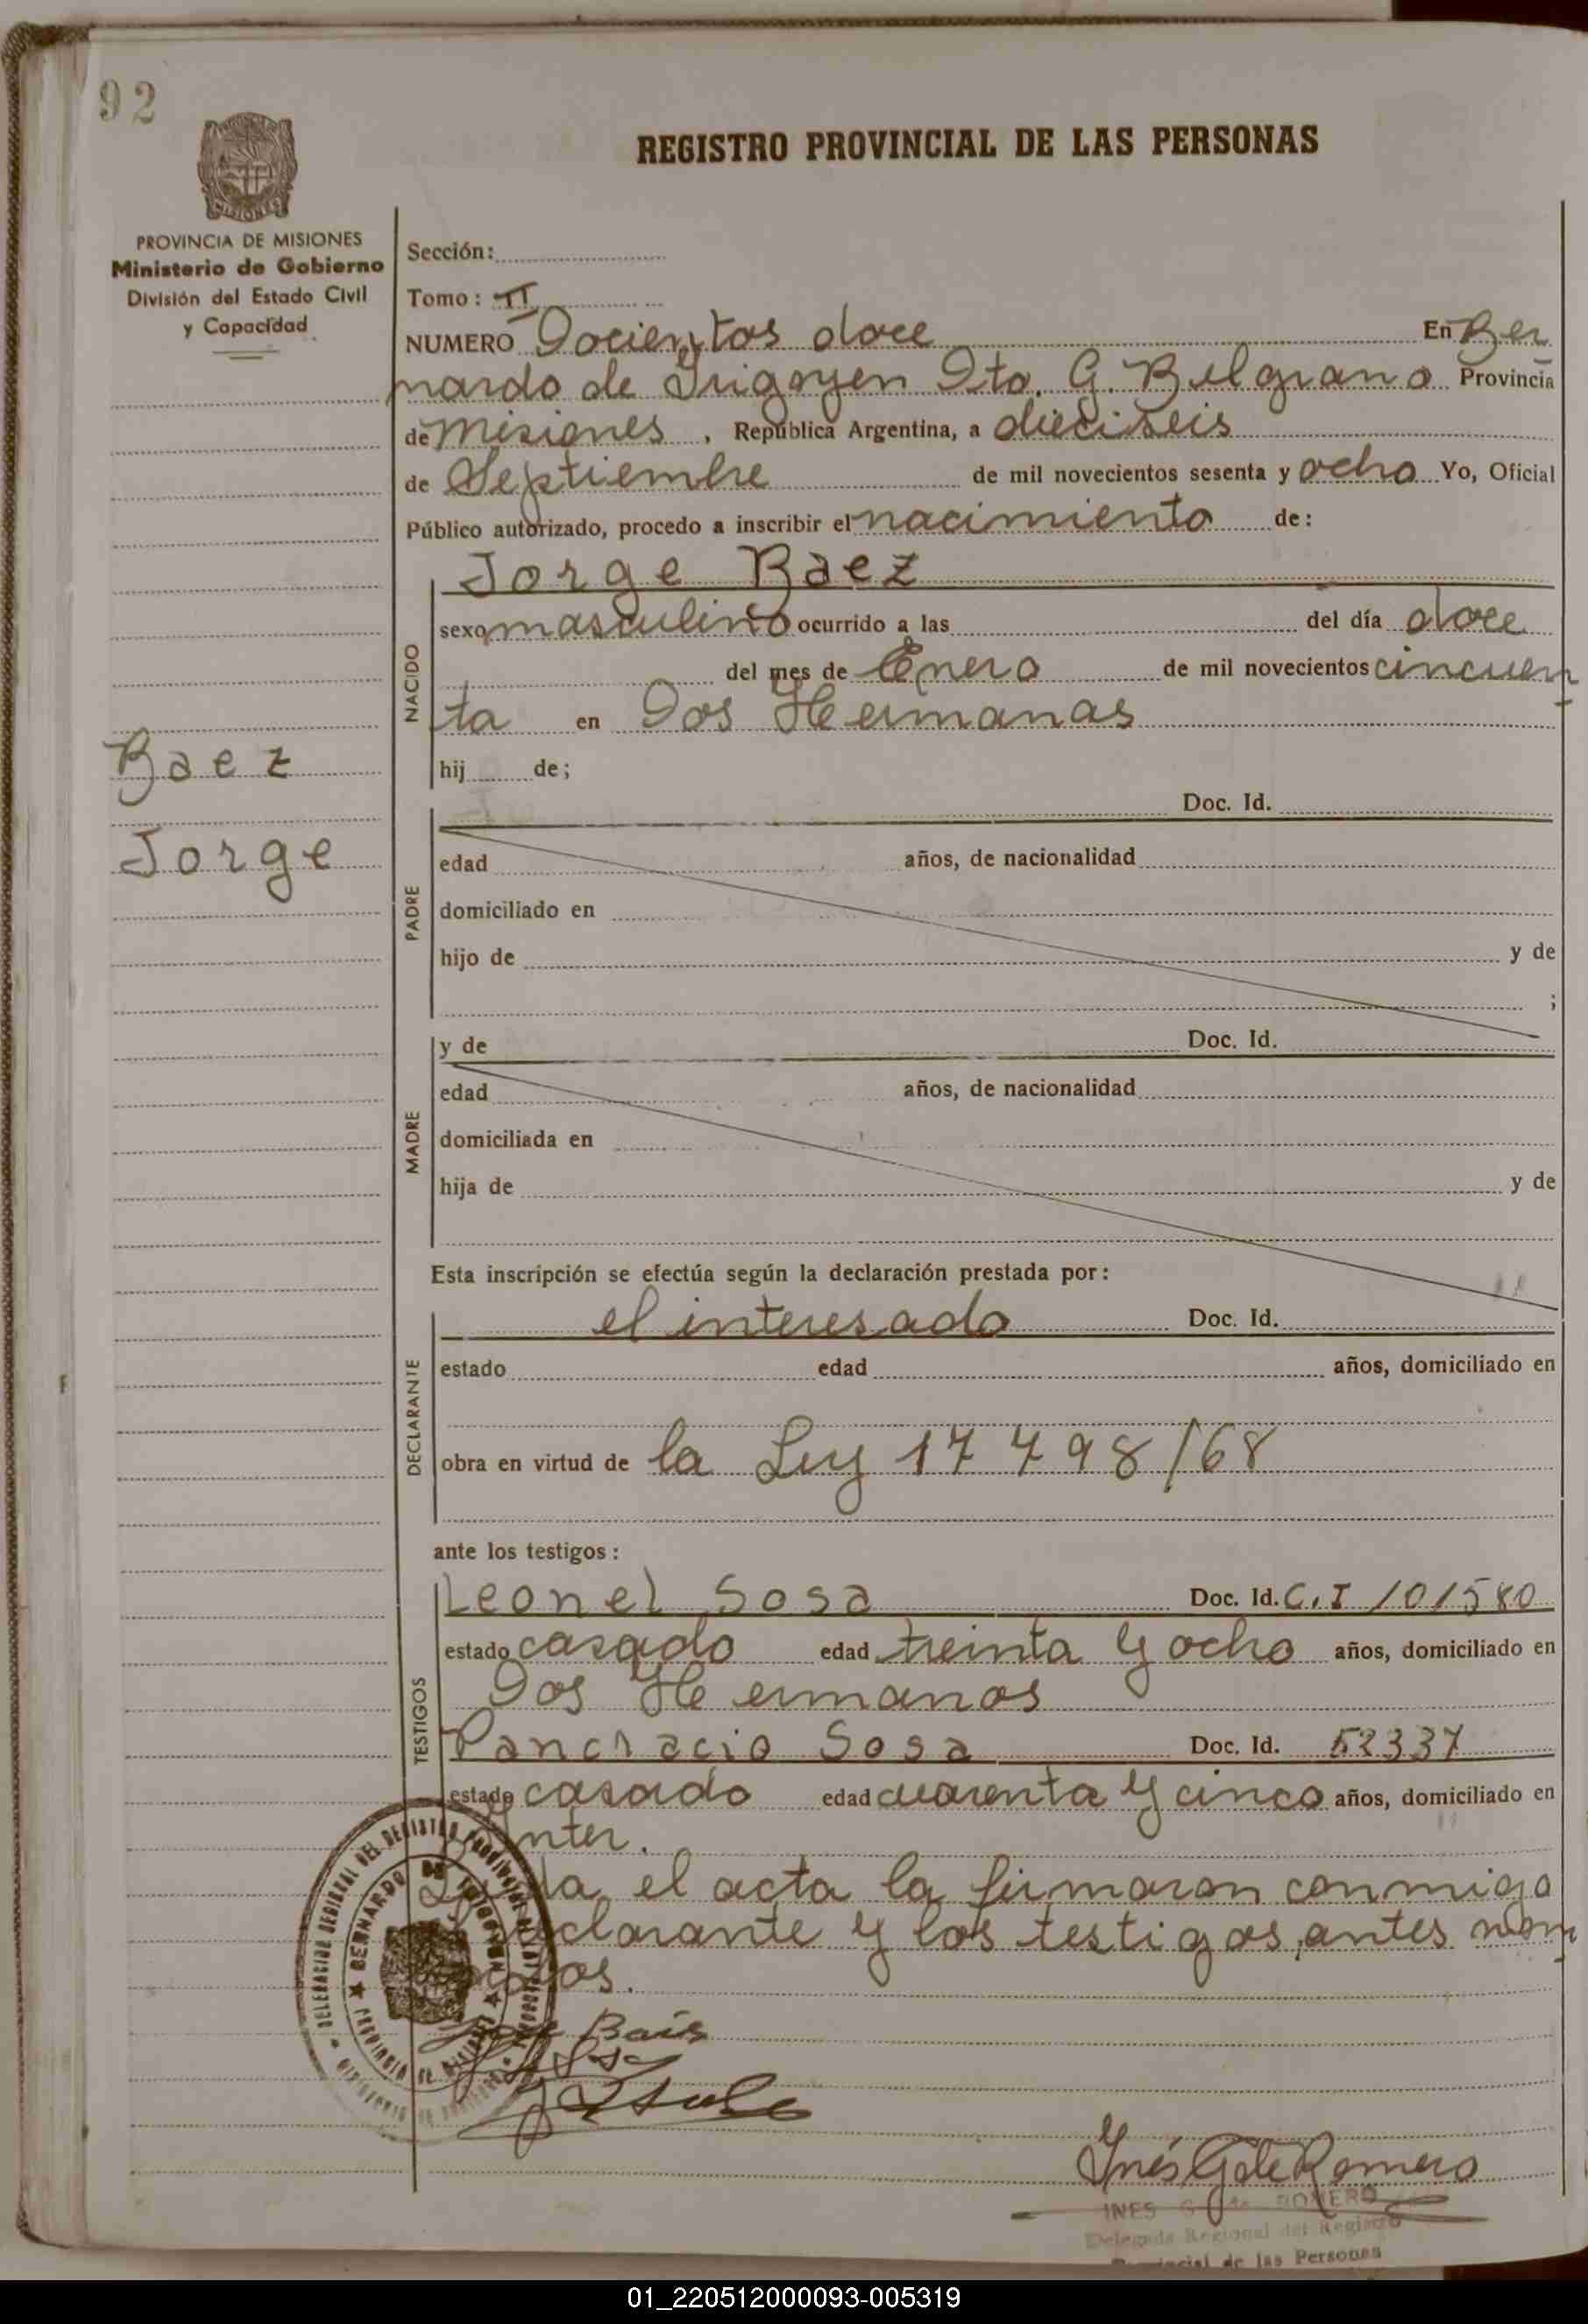 92
REGISTRO PROVINCIAL DE LAS PERSONAS
MISIONES
PROVINCIA DE MISIONES
Ministerio de Gobierno
División del Estado Civil
y Capacidad
Sección:
Tomo: II
NUMERO Docientos doce En Ber
nardo de Irigoyen Dto. G. Belgrano Provincia
de Misiones, República Argentina, a dieciseis
de Septiembre de mil novecientos sesenta y ocho Yo, Oficial
Público autorizado, procedo a inscribir el nacimiento de:
Jorge Baez
NACIDO
sexo masculino ocurrido a las del día doce
del mes de Enero de mil novecientos cincuen
ta en Dos Hermanas
hij de;
Baez
Jorge
Doc. Id.
PADRE
edad años, de nacionalidad
domiciliado en
hijo de y de
;
y de Doc. Id.
MADRE
edad años, de nacionalidad
domiciliada en
hija de y de
Esta inscripción se efectúa según la declaración prestada por:
el interesado Doc. Id.
DECLARANTE
estado edad años, domiciliado en
obra en virtud de la Ley 17498/68
ante los testigos:
Leonel Sosa Doc. Id. C.I 101580
TESTIGOS
estado casado edad treinta y ocho años, domiciliado en
Dos Hermanas
Pancracio Sosa Doc. Id. 52337
estado casado edad cuarenta y cinco años, domiciliado en
el acta la firmaron conmigo
y los testigos, antes nom
Baís
DELEGACION REGIONAL DEL REGISTRO PROVINCIAL DE LAS PERSONAS
BERNARDO DE IRIGOYEN
PROVINCIA DE MISIONES
Inés G de Romero
INES G. de ROMERO
Delegada Regional del Registro
Provincial de las Personas
01_220512000093-005319